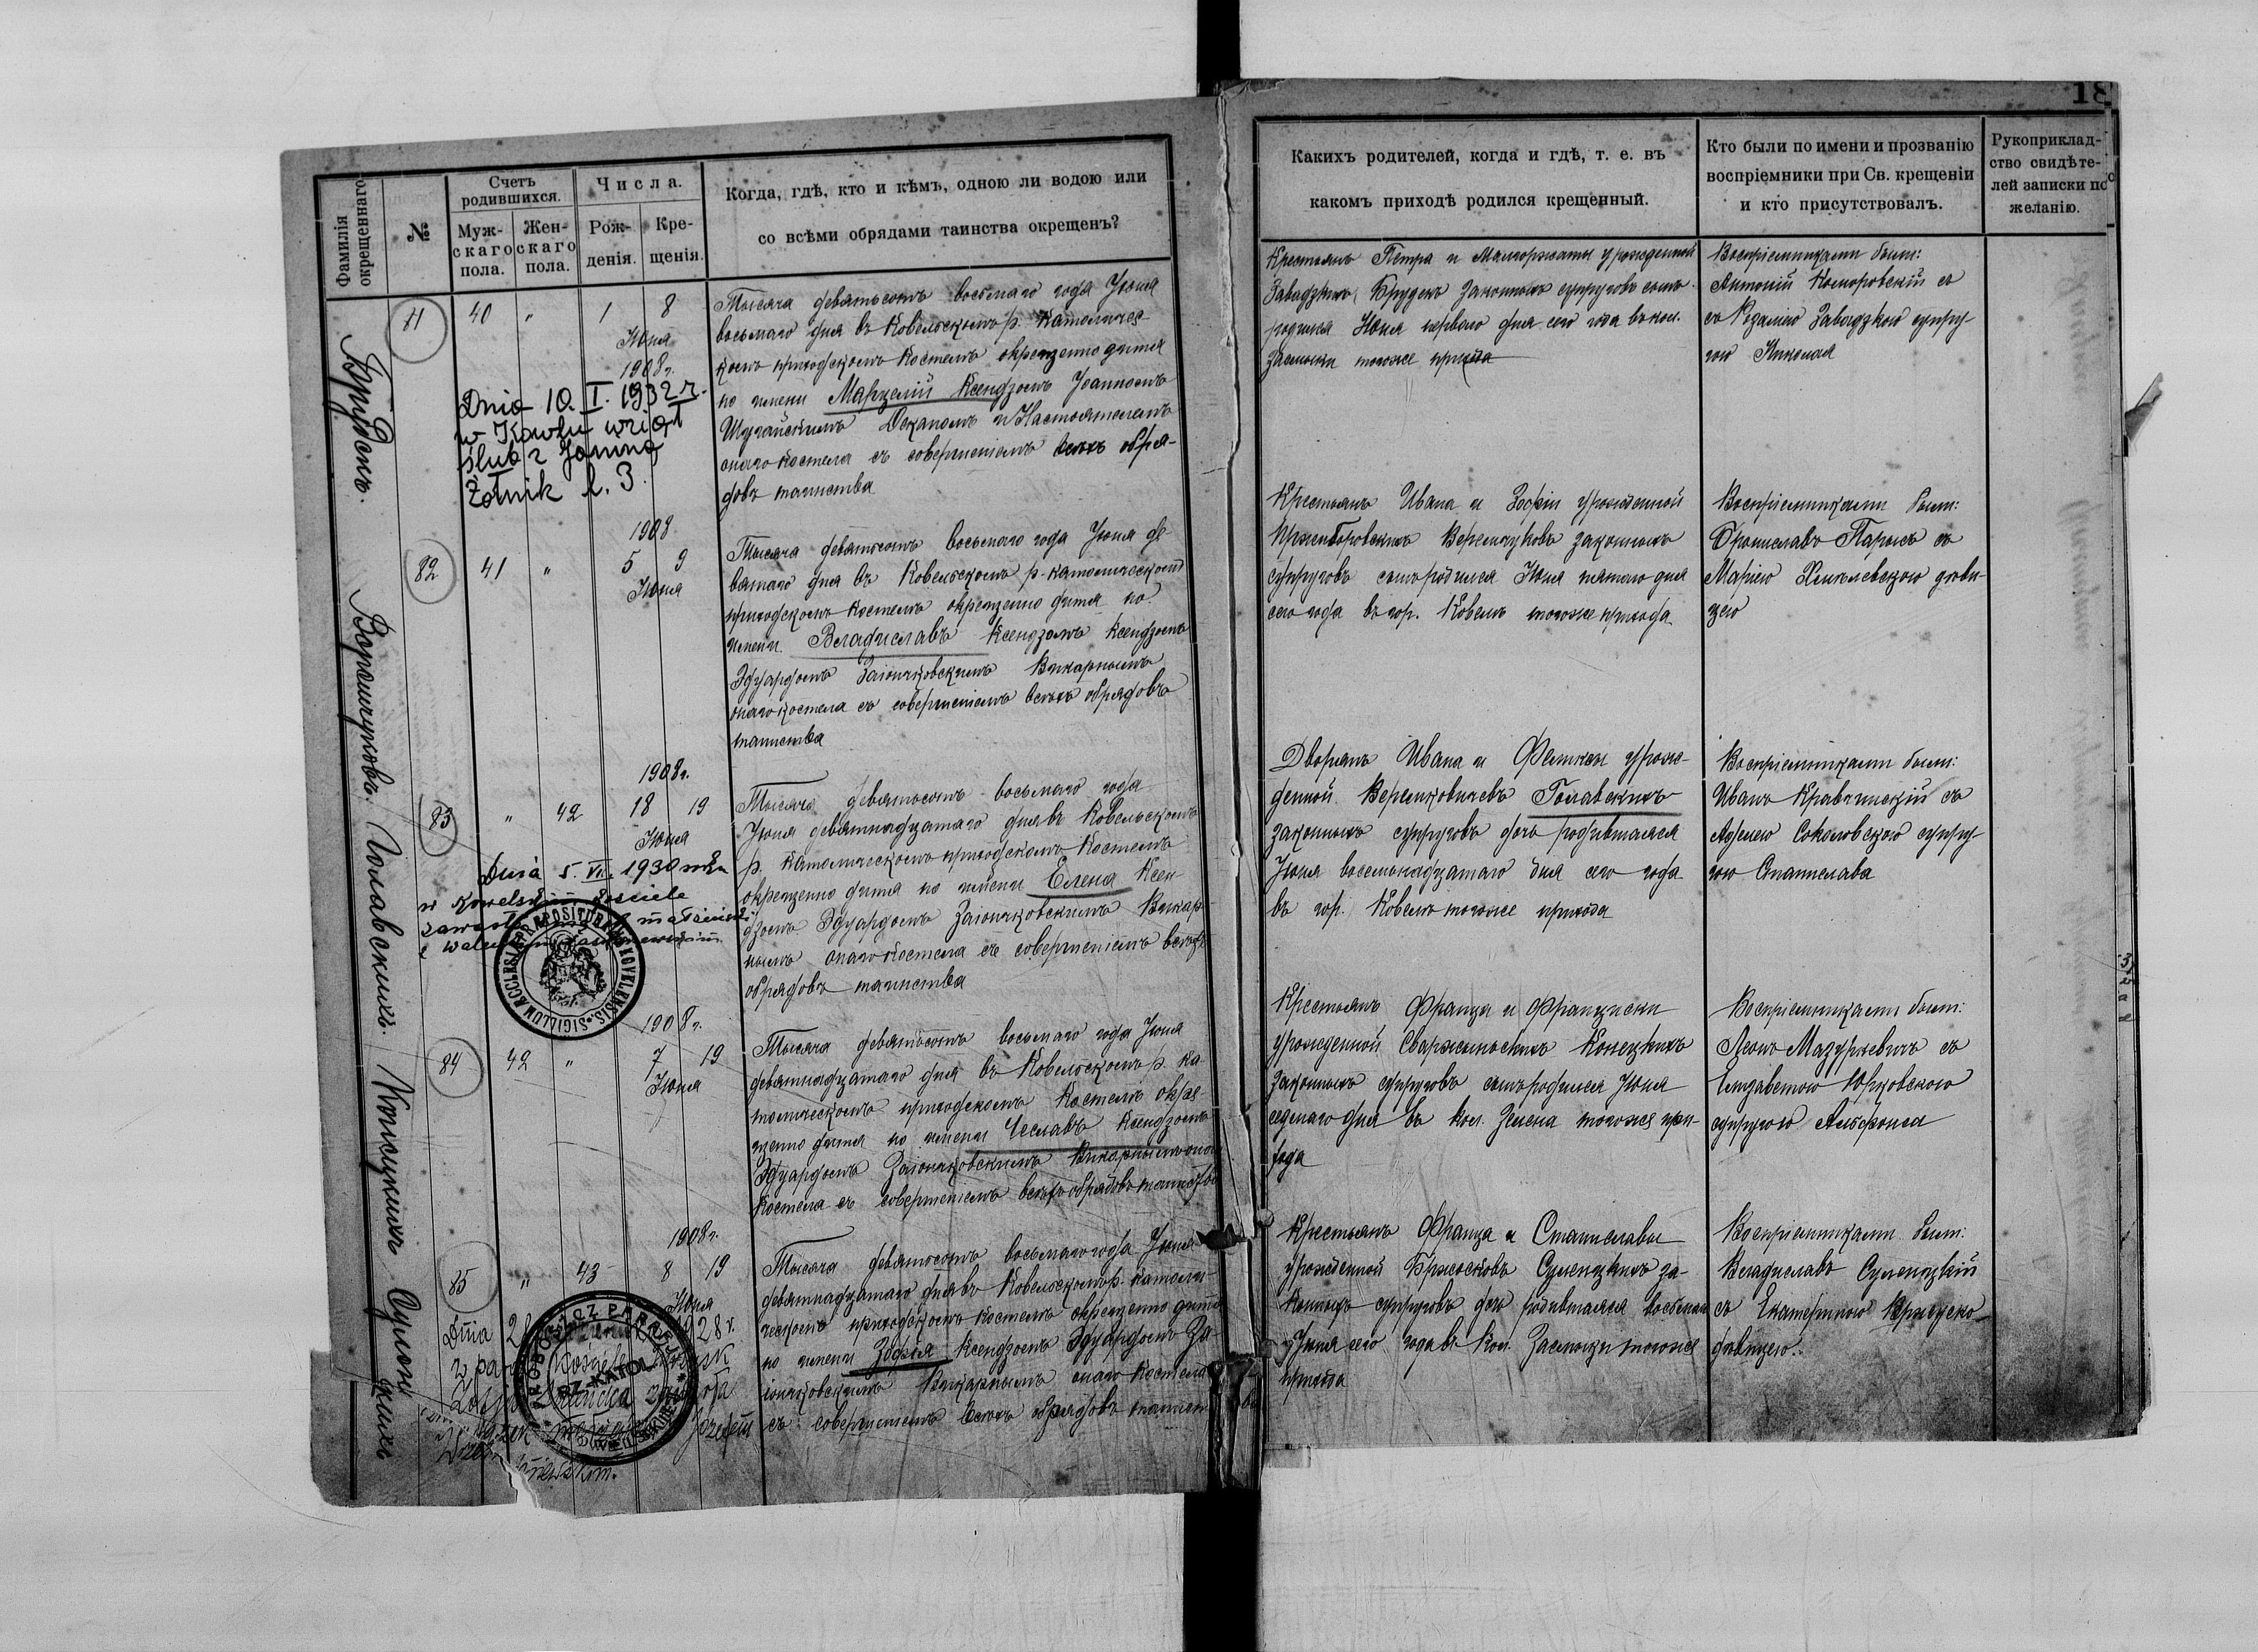 18
Фамилія
окрещеннаго
№
Счетъ
родившихся.
Муж-
скаго
пола.
Жен-
скаго
пола.
Числа.
Рож-
денія.
Кре-
щенія.
Когда, гдѣ, кто и кѣмъ, одною ли водою или
со всѣми обрядами таинства окрещенъ?
Какихъ родителей, когда и гдѣ, т. е. въ
какомъ приходѣ родился крещенный.
Кто были по имени и прозванію
воспріемники при Св. крещеніи
и кто присутствовалъ.
Рукоприклад-
ство свидѣте-
лей записки по
желанію.
Брудекъ.
40 " 1 8
Іюня
1908 г.
Dnia 10. I. 1932 r.
w Kowlu wziął
ślub z Janiną
Żołnik
Тысяча девятьсотъ восьмаго года Іюня
восьмаго дня въ Ковельскомъ р. католичес-
комъ приходскомъ костелѣ окрещено дитя
по имени Марцелій Ксендзомъ Іоанномъ
Деканомъ и Настоятелемъ
онаго костела съ совершеніемъ всѣхъ обря-
довъ таинства
Крестьянъ Петра и Малгоржаты урожденной
Завадзкихъ Брудекъ законныхъ супруговъ сынъ
родился Іюня перваго дня сего года въ кол.
Засмыки тогоже прихода
Воспріемниками были:
Антоній Коморовскій съ
съ Розаліею Завадзкою супру-
гою Николая
82 41 " 5 9
1908
Іюня
Тысяча девятьсотъ восьмаго года Іюня де-
вятаго дня въ Ковельскомъ р.-католическомъ
приходскомъ костелѣ окрещено дитя по
имени Владиславъ Ксендзомъ Ксендзомъ
Эдуардомъ Заіончковскимъ Викарнымъ
онаго костела съ совершеніемъ всѣхъ обрядовъ
таинства
Крестьянъ Ивана и Зофіи урожденной
Веремчуковъ законныхъ
супруговъ сынъ родился Іюня пятаго дня
сего года въ гор. Ковелѣ тогоже прихода
Воспріемниками были:
Брониславъ Парысъ съ
Маріею Хмѣлевскою дѣви-
цею
Голавскихъ.
83 " 42 18 19
1908 г.
Іюня
Dnia 5. VII. 1930 roku
w Kowelskim kościele
Тысяча девятьсотъ восьмаго года
Іюня девятнадцатаго дня въ Ковельскомъ
р. католическомъ приходскомъ костелѣ
окрещено дитя по имени Елена Ксен-
дзомъ Эдуардомъ Заіончковскимъ Викар-
нымъ онаго костела съ совершеніемъ всѣхъ
обрядовъ таинства
Дворянъ Ивана и Феликсы урож-
денной Веренковичевъ Голавскихъ
законныхъ супруговъ дочь родившаяся
Іюня восемьнадцатаго дня сего года
въ гор. Ковелѣ тогоже прихода
Воспріемниками были:
Иванъ Кравчинскій съ
Аделею Соколовскою супру-
гою Станислава
Конецкихъ
84 42 " 7 19
1908 г.
Іюня
Тысяча девятьсотъ восьмаго года Іюня
девятнадцатаго дня въ Ковельскомъ р. ка-
толическомъ приходскомъ костелѣ окре-
щено дитя по имени Чеславъ Ксендзомъ
Эдуардомъ Заіончковскимъ Викарнымъ онаго
костела съ совершеніемъ всѣхъ обрядовъ таинства
Крестьянъ Франца и Францишки
урожденной Конецкихъ
законныхъ супруговъ сынъ родился Іюня
седьмаго дня въ кол. Зелена тогоже при-
хода
Воспріемниками были:
Леонъ Мазуркевичъ съ
Елизаветою Юрковскою
супругою Альфонса
85 " 43 8 19
1908 г.
Іюня
Тысяча девятьсотъ восьмаго года Іюня
девятнадцатаго дня въ Ковельскомъ р. католи-
ческомъ приходскомъ костелѣ окрещено дитя
по имени Зофія Ксендзомъ Эдуардомъ За-
іончковскимъ Викарнымъ онаго костела
съ совершеніемъ всѣхъ обрядовъ таинства
Крестьянъ Франца и Станиславы
урожденной за-
конныхъ супруговъ дочь родившаяся восьмаго
Іюня сего года въ кол. Засмыки тогоже
прихода
Воспріемниками были:
Владиславъ
съ Екатериною
дѣвицею.